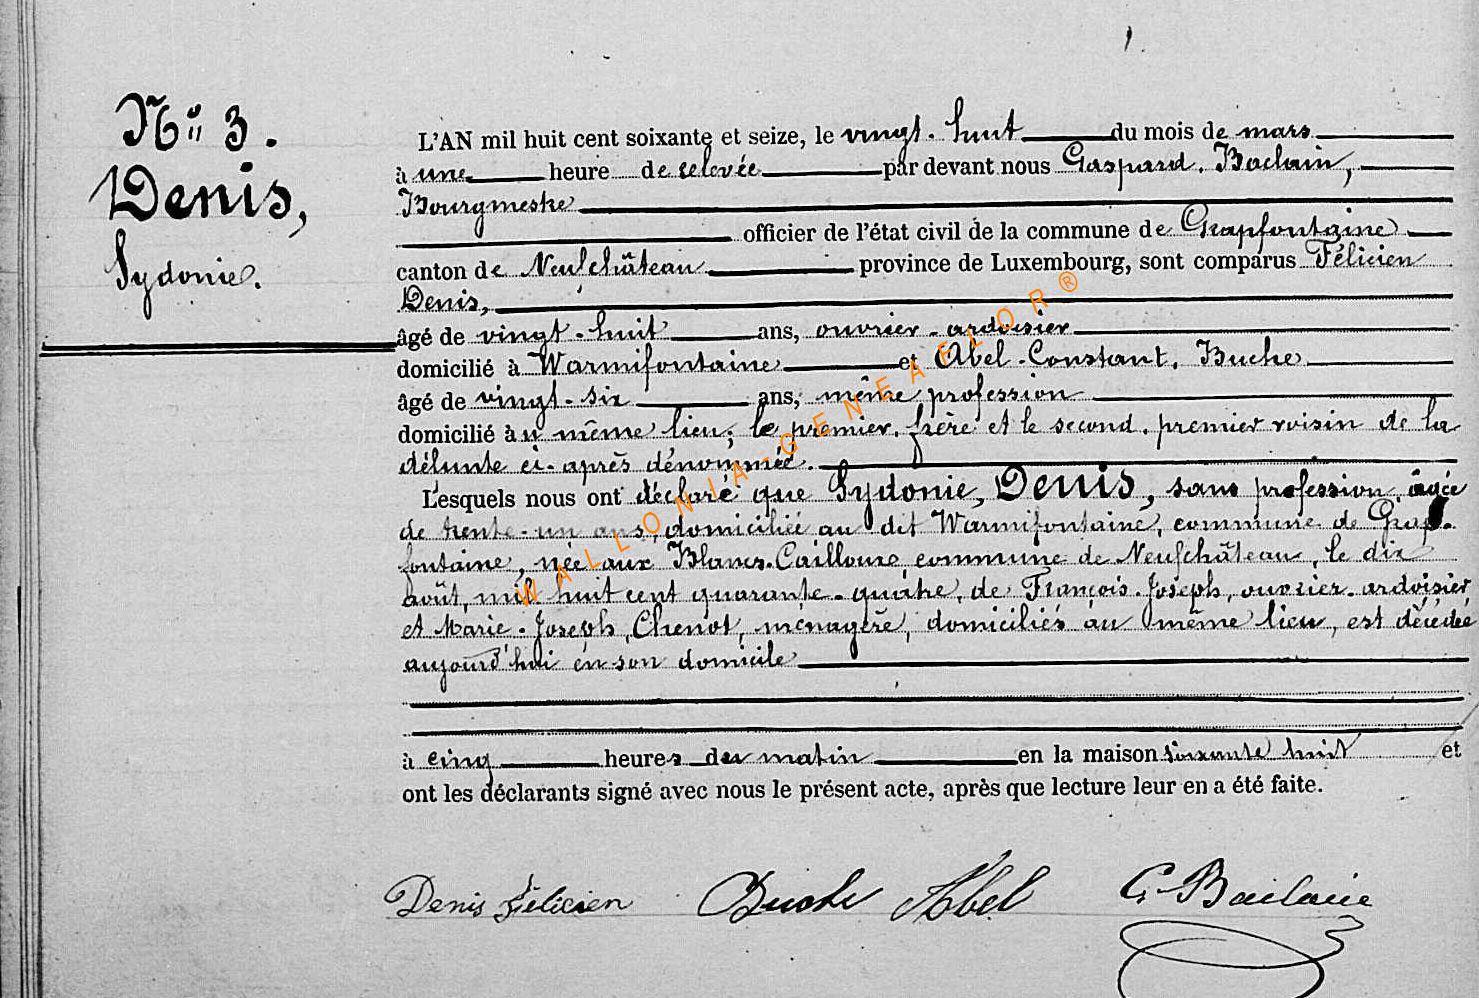 N° 3.
Denis,
Sydonie.
L'AN mil huit cent soixante et seize, le vingt-huit du mois de mars
à une heure de relevée par devant nous Gaspard Baclain,
Bourgmestre
officier de l'état civil de la commune de Grapfontaine
canton de Neufchâteau province de Luxembourg, sont comparus Félicien
Denis,
âgé de vingt-huit ans, ouvrier-ardoisier
domicilié à Warmifontaine et Abel-Constant Buche
âgé de vingt-six ans, même profession
domicilié àu même lieu, le premier, frère et le second, premier voisin de la
défunte ci-après dénommée.
Lesquels nous ont déclaré que Sydonie, Denis, sans profession, âgée
de trente-un ans, domiciliée au dit Warmifontaine, commune de Grap-
fontaine, née aux Blancs-Cailloux, commune de Neufchâteau, le dix
août, mil huit cent quarante-quatre, de François-Joseph, ouvrier-ardoisier
et Marie-Joseph, Chenot, ménagère, domiciliés au même lieu, est décédée
aujourd'hui en son domicile
à cinq heures du matin en la maison soixante huit et
ont les déclarants signé avec nous le présent acte, après que lecture leur en a été faite.
Denis Félicien Buche Abel G. Baclain
WALLONIA-GENEAFLOR®